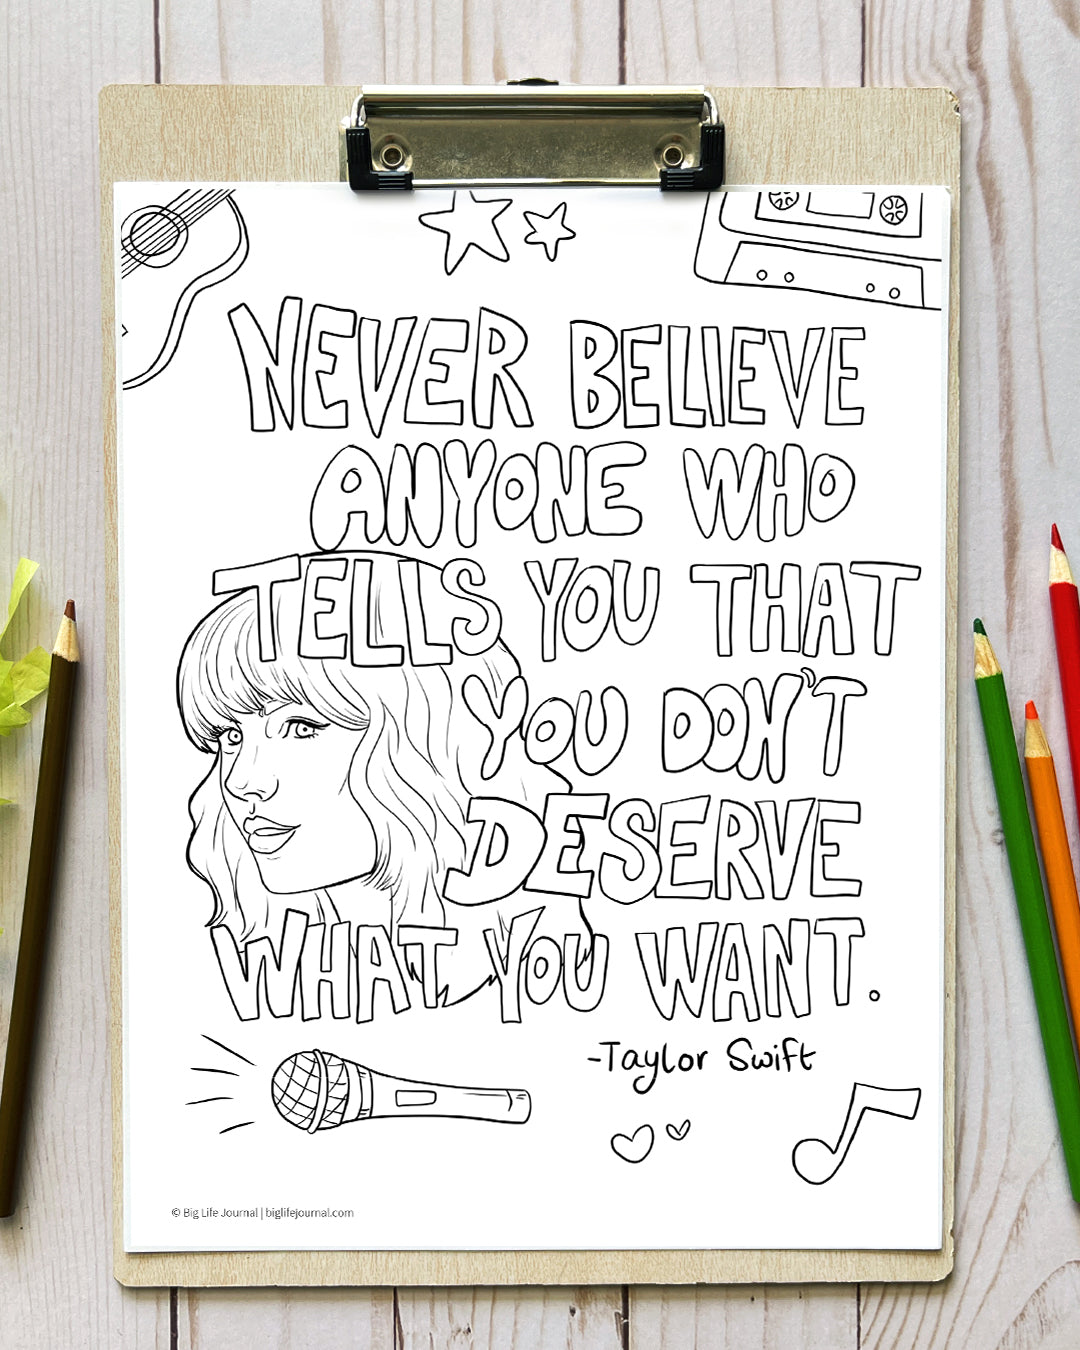 NEVER BELIEVE
ANYONE WHO
TELLS YOU THAT
YOU DON'T
DESERVE
WHAT YOU WANT.
-Taylor Swift
© Big Life Journal | biglifejournal.com